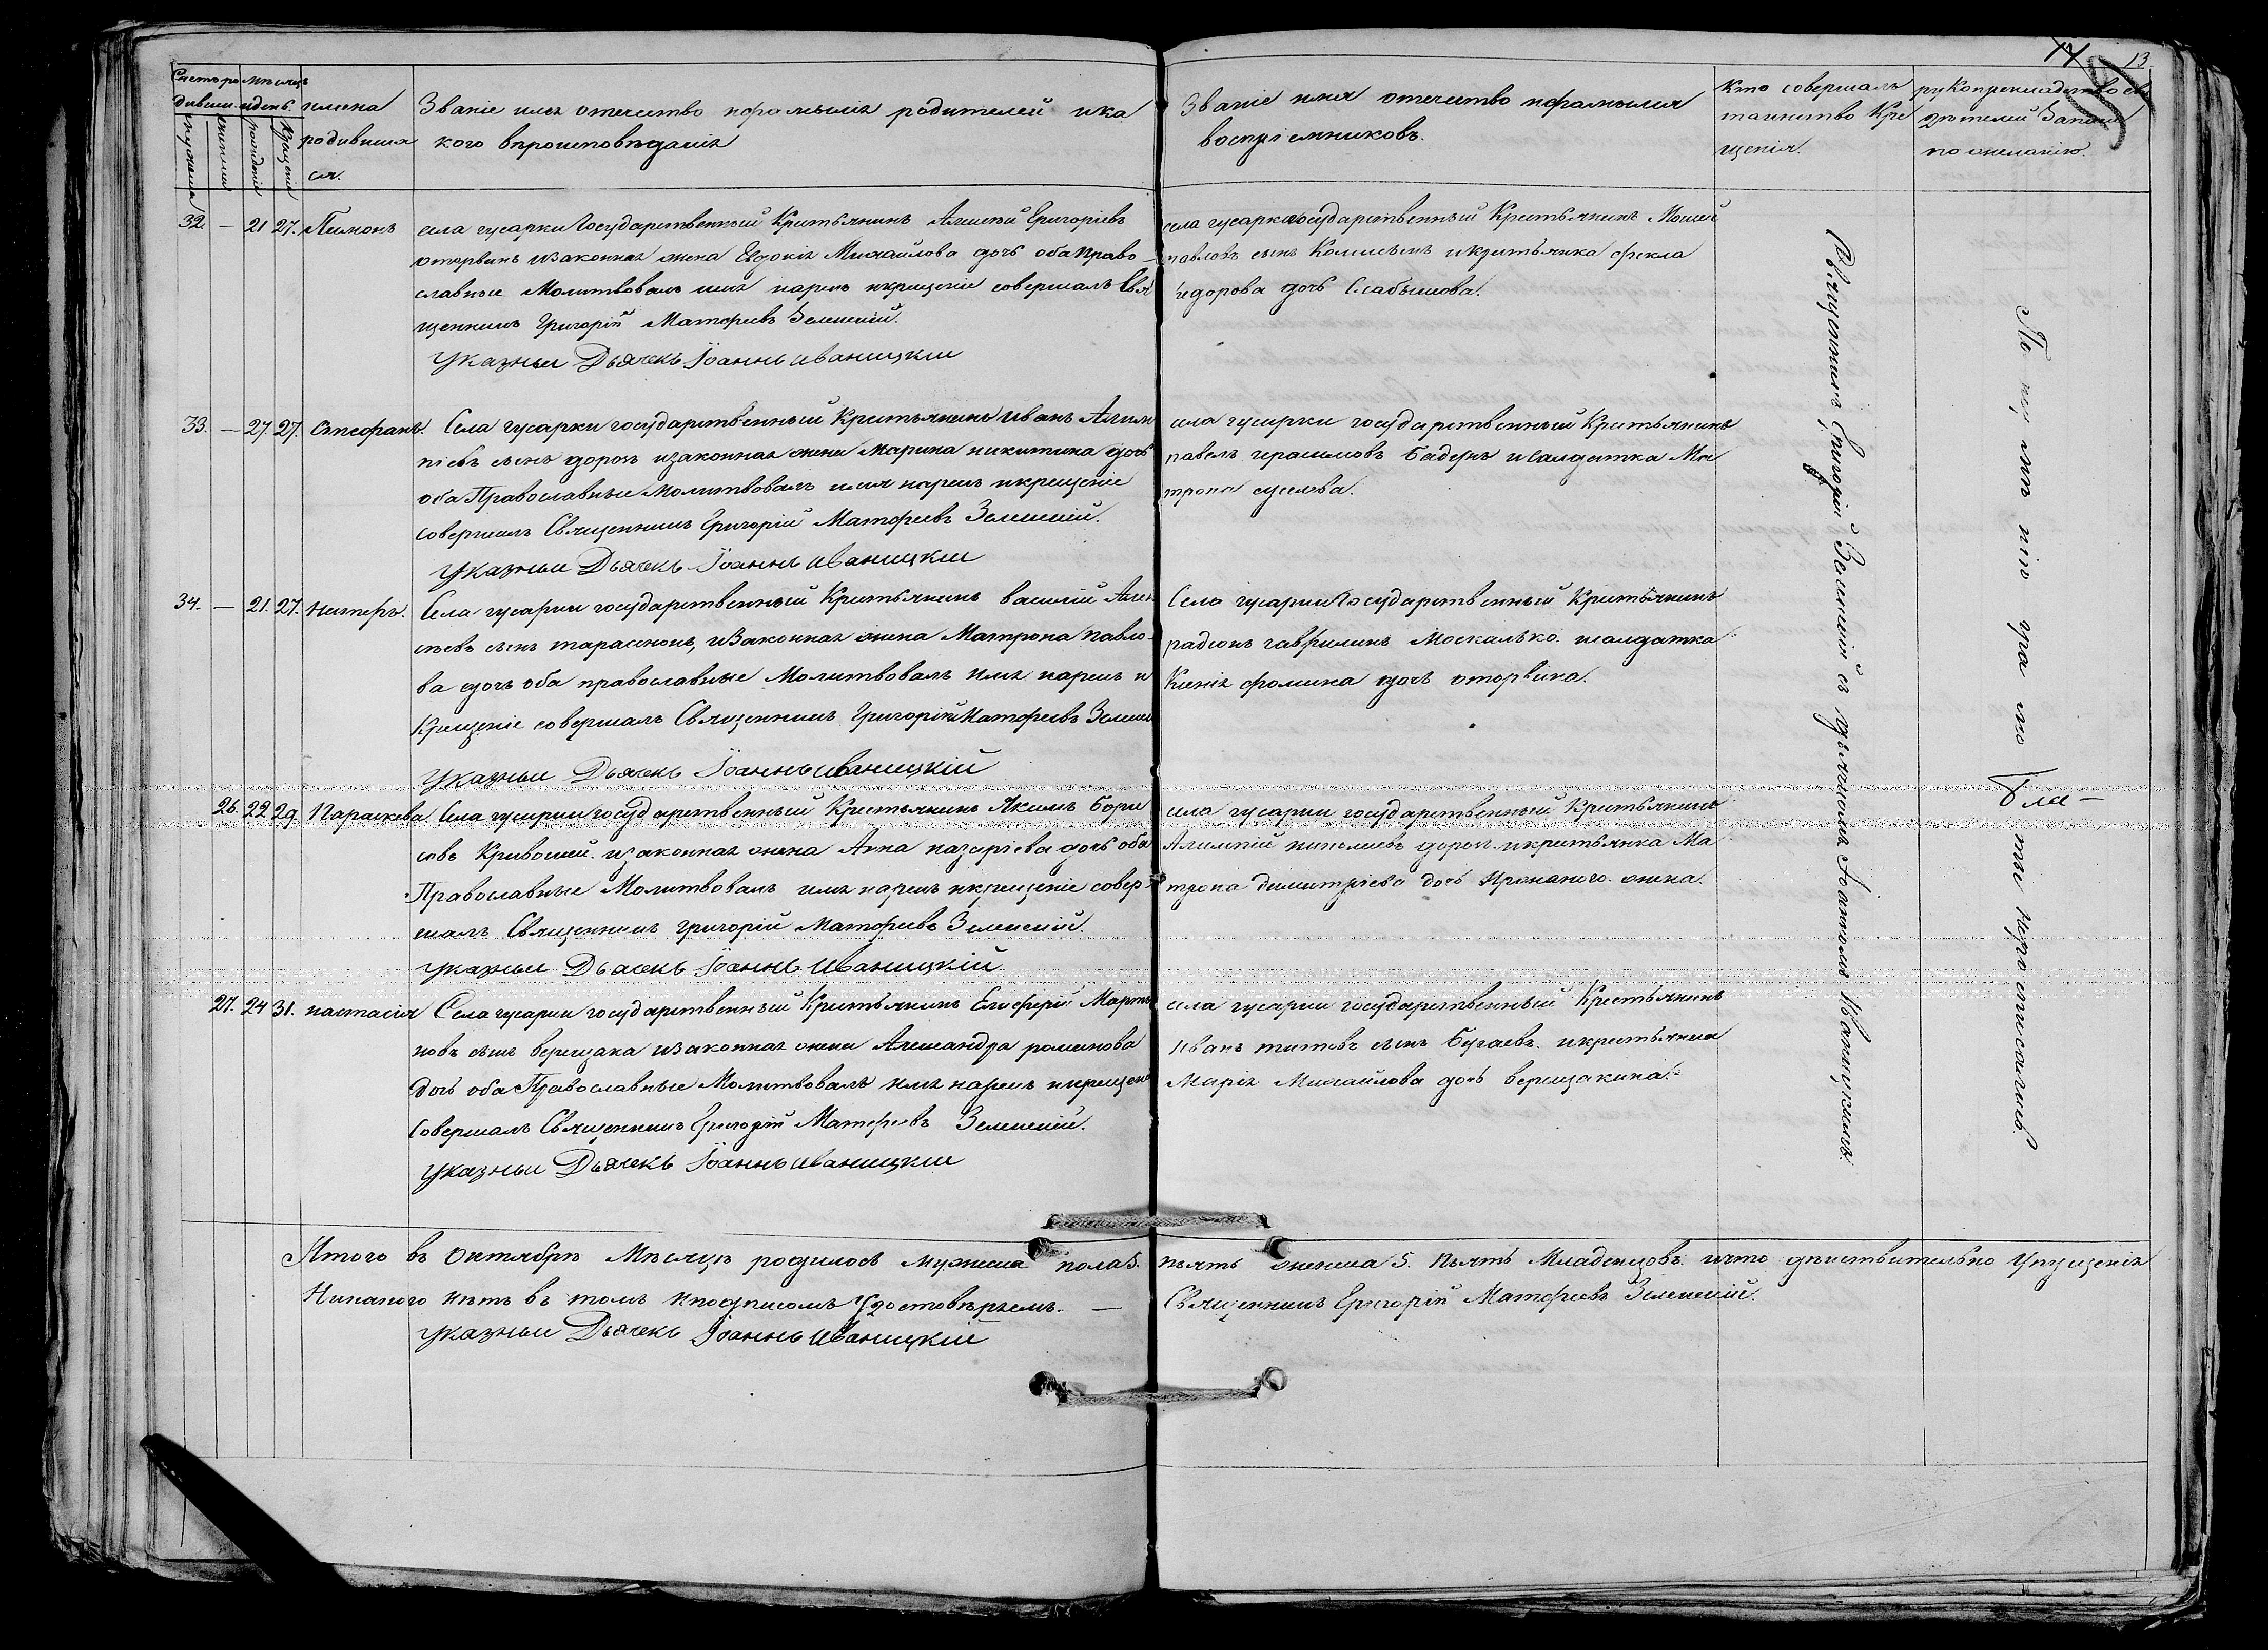 14 13
Счетъ ро дивши. мѣсяцъ и день.
мужеска женска рожденія Крещенія
имена
родивша
ся.
Званіе имя отечество ифамилія родителей ика
кого вѣроисповѣданія
Званіе имя отечество ифамилія
воспріемниковъ.
Кто совершалъ
таинство Кре
щенія.
рукоприкладство сви
дѣтелей Записи
по желанію.
32. — 21 27. Пимонъ села гусарки Государственный Крестьянинъ Алексѣй Григоріевъ
оторвинъ изаконная жена Евдокія Михайлова дочь оба право-
славные Молитвовалъ имя нарекъ икрещеніе совершалъ Свя
щенникъ Григорій Матфеевъ Зеленскій.
Указный Дьячекъ Іоаннъ иваницкіи
села гусарки государственный Крестьянинъ
павловъ сынъ икрестьянка фекла
федорова дочь Слабышова.
33. — 27. 27. Стефанъ. Села гусарки государственный Крестьянинъ иванъ Алим
піевъ сынъ дорош изаконная жена Марина никитина дочь
оба Православные Молитвовалъ имя нарекъ икрещеніе
совершалъ Священникъ Григорій Матфеевъ Зеленскій.
Указныи Дьячекъ Іоаннъ иваницкіи
села гусарки государственный Крестьянинъ
павелъ герасимовъ Бадеръ исалдатка Ма
трона
34. — 21. 27. нестеръ. Села гусарки государственный Крестьянинъ василій Алек
сѣевъ сынъ тарасенко, изаконная жена Матрона павло-
ва дочь оба православные Молитвовалъ имя нарекъ и
Крещеніе совершалъ Священникъ Григорій Матфеевъ Зеленск
Указныи Дьячекъ Іоаннъ иваницкій
Села гусарки Государственный Крестьянинъ
радіонъ гаврилинъ Москалько. исалдатка
Ксенія фомина дочь оторвина.
26. 22 29. Параскева. Села гусарки государственный Крестьянинъ Якимъ Бори
совъ Кривошей. изаконная жена Анна назаріева дочь оба
Православные Молитвовалъ имя нарекъ икрещеніе совер-
шалъ Священникъ григорій Матфеевъ Зеленскій.
указныи Дьячекъ Іоаннъ иваницкій
села гусарки государственный Крестьянинъ
Алимпій николаевъ дорош. икрестьянка Ма
трона димитріева дочь жена.
27. 24 31. настасія Села гусарки государственный Крестьянинъ Елеферій Марты
новъ сынъ верещака изаконная жена Александра романова
дочь оба Православные Молитвовалъ имя нарекъ икрещеніе
совершалъ Священникъ Григорій Матфеевъ Зеленскій.
указныи Дьячекъ Іоаннъ иваницкіи
села гусарки государственный Крестьянинъ
Иванъ титовъ сынъ Бугаевъ. икрестьянка
Марія Михайлова дочь верещакина.
Священникъ Григорій Зеленскій съ дьячкомъ Іоанномъ Иваницкимъ.
По негра мо тно сти
Итого въ Октябрѣ Мѣсяцѣ родилось мужеска пола 5. пять женска 5. пять Младенцовъ. ичто дѣиствительно упущенія
Никакого нѣтъ въ томъ иподписомъ Удостовѣряемъ. — Священникъ Григорій Матфеевъ Зеленскій.
указныи Дьячекъ Іоаннъ иваницкій